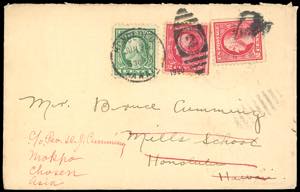 Mr. Bruce Cumming
Mills School
Honolulu
Hawaii
c/o Rev. D. J. Cumming
Mokpo
Chosen
Asia